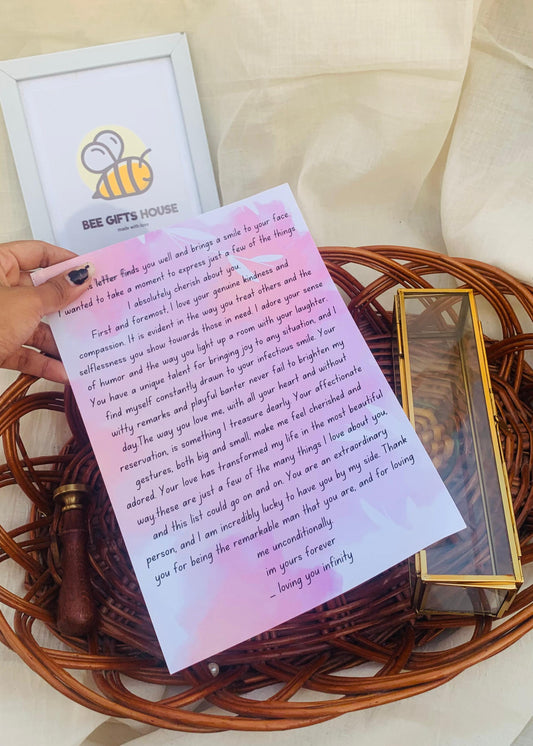 BEE GIFTS HOUSE
made with love
is letter finds you well and brings a smile to your face.
I wanted to take a moment to express just a few of the things
I absolutely cherish about you.
First and foremost, I love your genuine kindness and
compassion. It is evident in the way you treat others and the
selflessness you show towards those in need. I adore your sense
of humor and the way you light up a room with your laughter.
You have a unique talent for bringing joy to any situation, and I
find myself constantly drawn to your infectious smile. Your
witty remarks and playful banter never fail to brighten my
day.The way you love me, with all your heart and without
reservation, is something I treasure dearly. Your affectionate
gestures, both big and small, make me feel cherished and
adored. Your love has transformed my life in the most beautiful
way.these are just a few of the many things I love about you,
and this list could go on and on. You are an extraordinary
person, and I am incredibly lucky to have you by my side. Thank
you for being the remarkable man that you are, and for loving
me unconditionally.
im yours forever
- loving you infinity